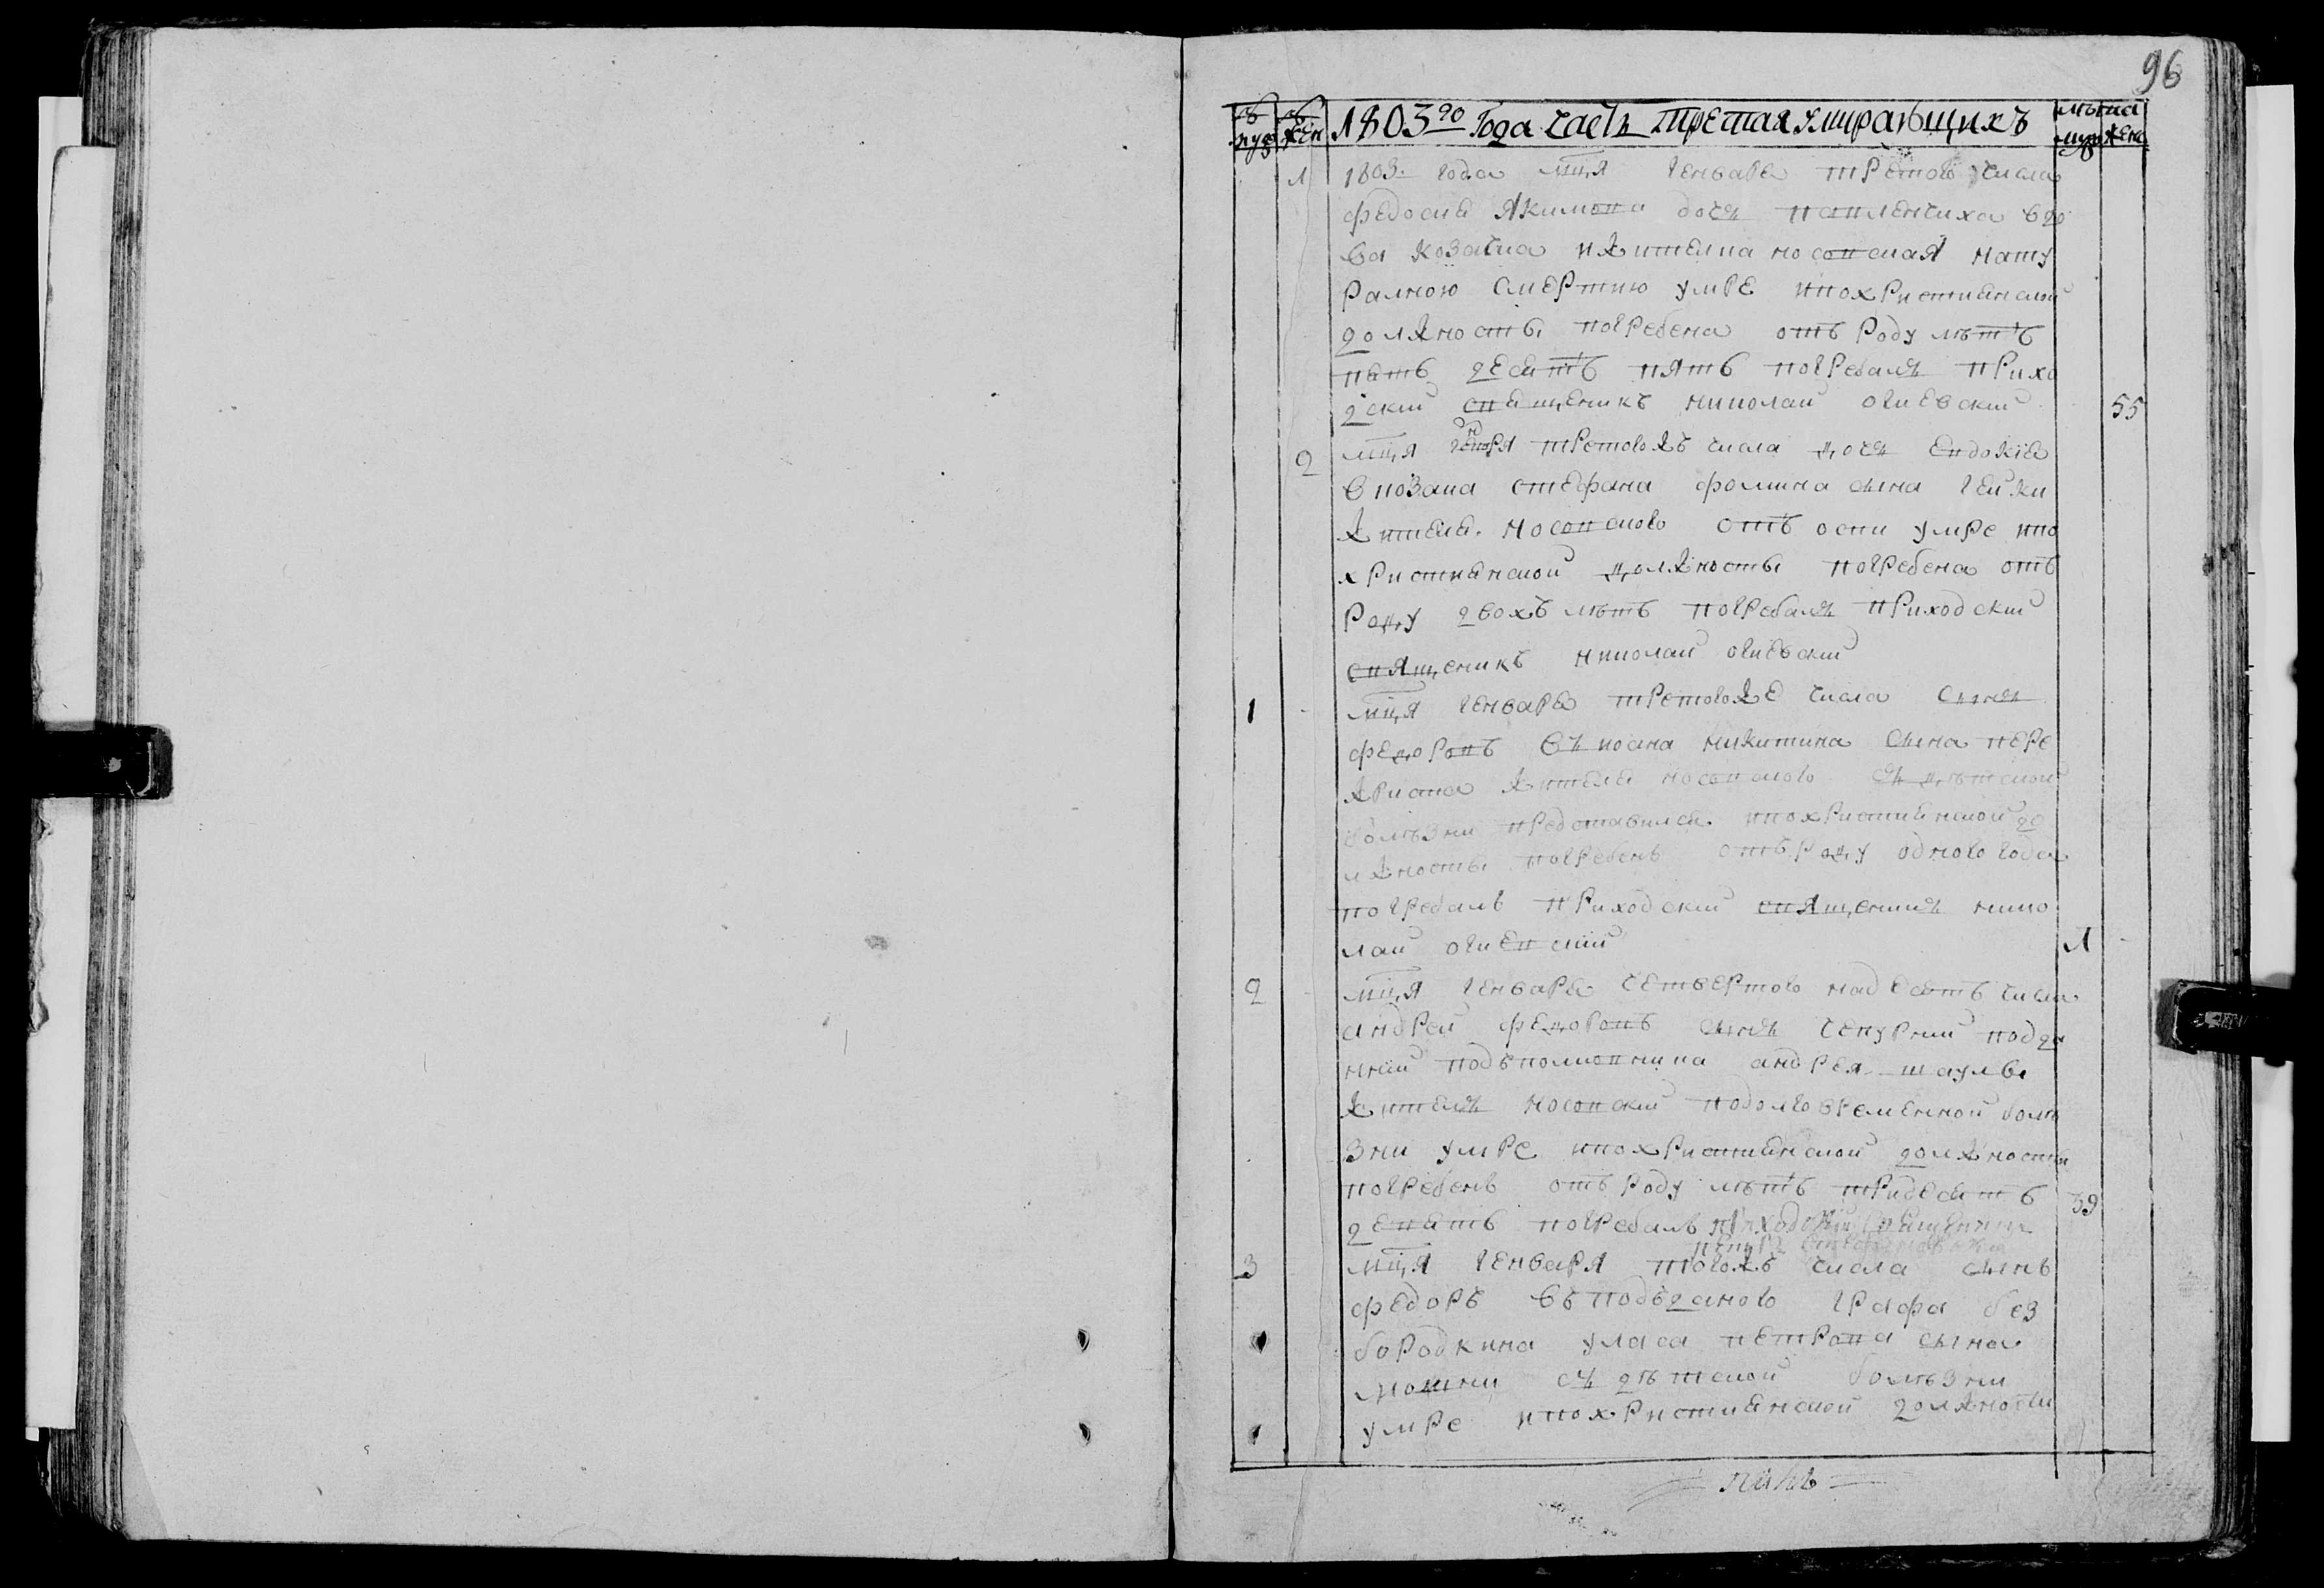 96
муж жен 1803го Года часть третая умиравшихъ лѣта муж жен
1 1803. Года мця генваря третого числа
федосия Якимова дочъ павленчиха вдо
ва козачка жителка носовская нату
ралною смертию умре ипохристианской
должносты погребена отъ роду лѣтъ
пать десятъ пять погребалъ прихо
дский священикъ николай огиевский 55
2 мця генвря третогожъ числа дочъ евдокия
в козака стефана фомина сына гейки
жителя носовского отъ оспи умре ипо
христианской должносты погребена отъ
роду двохъ лѣтъ погребалъ приходский
священикъ николай огиевский
1 мця генваря третогоже числа сынъ
федоровъ въ козака никитина сына пере
жителя носовского съ дѣтской
болѣзни представился ипохристианской до
лжносты погребенъ отъ роду одного года
погребалъ приходский священикъ нико
лай огиевский 1
2 мця генваря четвертого надесять числа
андрей федоровъ сынъ чепурний подда
ний подъполковника андрея
житель носовский подолговременной болѣ
зни умре ипохристианской должности
погребенъ отъ роду лѣтъ тридесятъ 39
девять погребалъ приходский священникъ
петръ
3 мця генваря тогожъ числа сынъ
федоръ въ подъданого графа без
бородкина уласа петрова сына
съ дѣтской болѣзни
умре ипохристианской должности